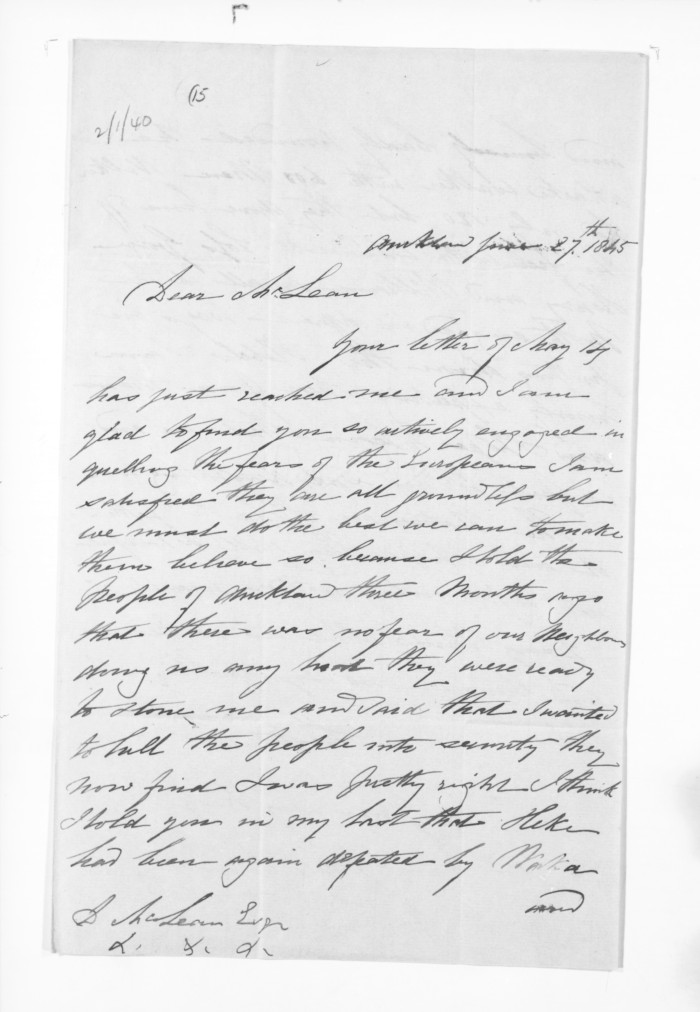 (15
2/1/40
Auckland June 27th. 1845
Dear McLean
Your letter of May 14
has just reached me and I am
glad to find you so actively engaged in
quelling the fears of the Europeans I am
satisfied they are all groundless but
we must do the best we can to make
them believe so. because I told the
people of Auckland three Months ago
that there was no fear of our Neighbours
doing us any hurt they were ready
to stone me and said that I wanted
to lull the people into security they
now find I was pretty right I think
I told you in my last that Heke
had been again defeated by Waka
and
D McLean Esqr
&. &. &.